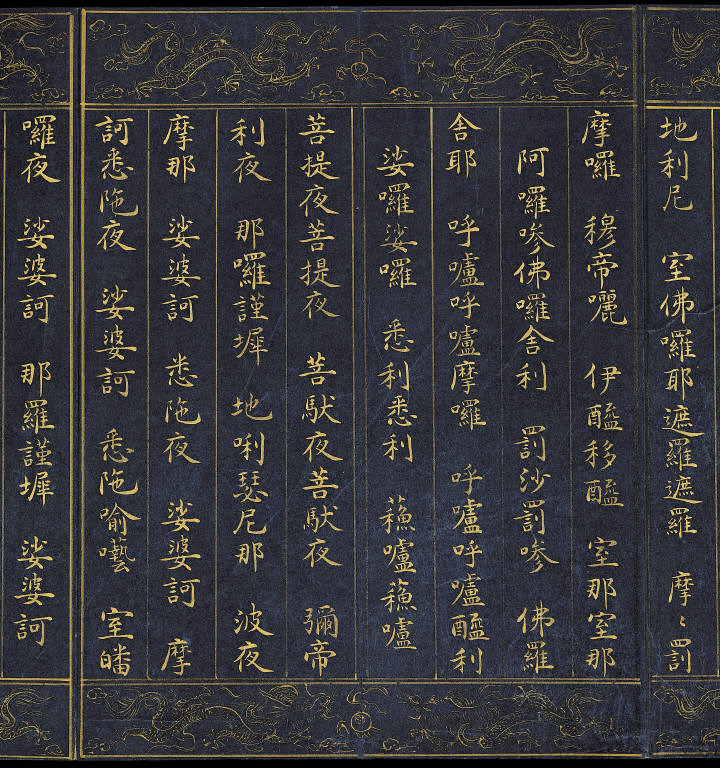 地利尼 室佛囉耶遮羅遮羅 摩〻罰
摩囉 穆帝㘑 伊醯移醯 室那室那
阿囉嘇佛囉舍利 罰沙罰嘇 佛羅
舍耶 呼嚧呼嚧摩囉 呼嚧呼嚧醯利
娑囉娑囉 悉利悉利 蘓嚧蘓嚧
菩提夜菩提夜 菩馱夜菩馱夜 彌帝
利夜 那囉謹墀 地唎瑟尼那 波夜
摩那 娑婆訶 悉陁夜 娑婆訶 摩
訶悉陁夜 娑婆訶 悉陁喻囈 室皤
囉夜 娑婆訶 那羅謹墀 娑婆訶